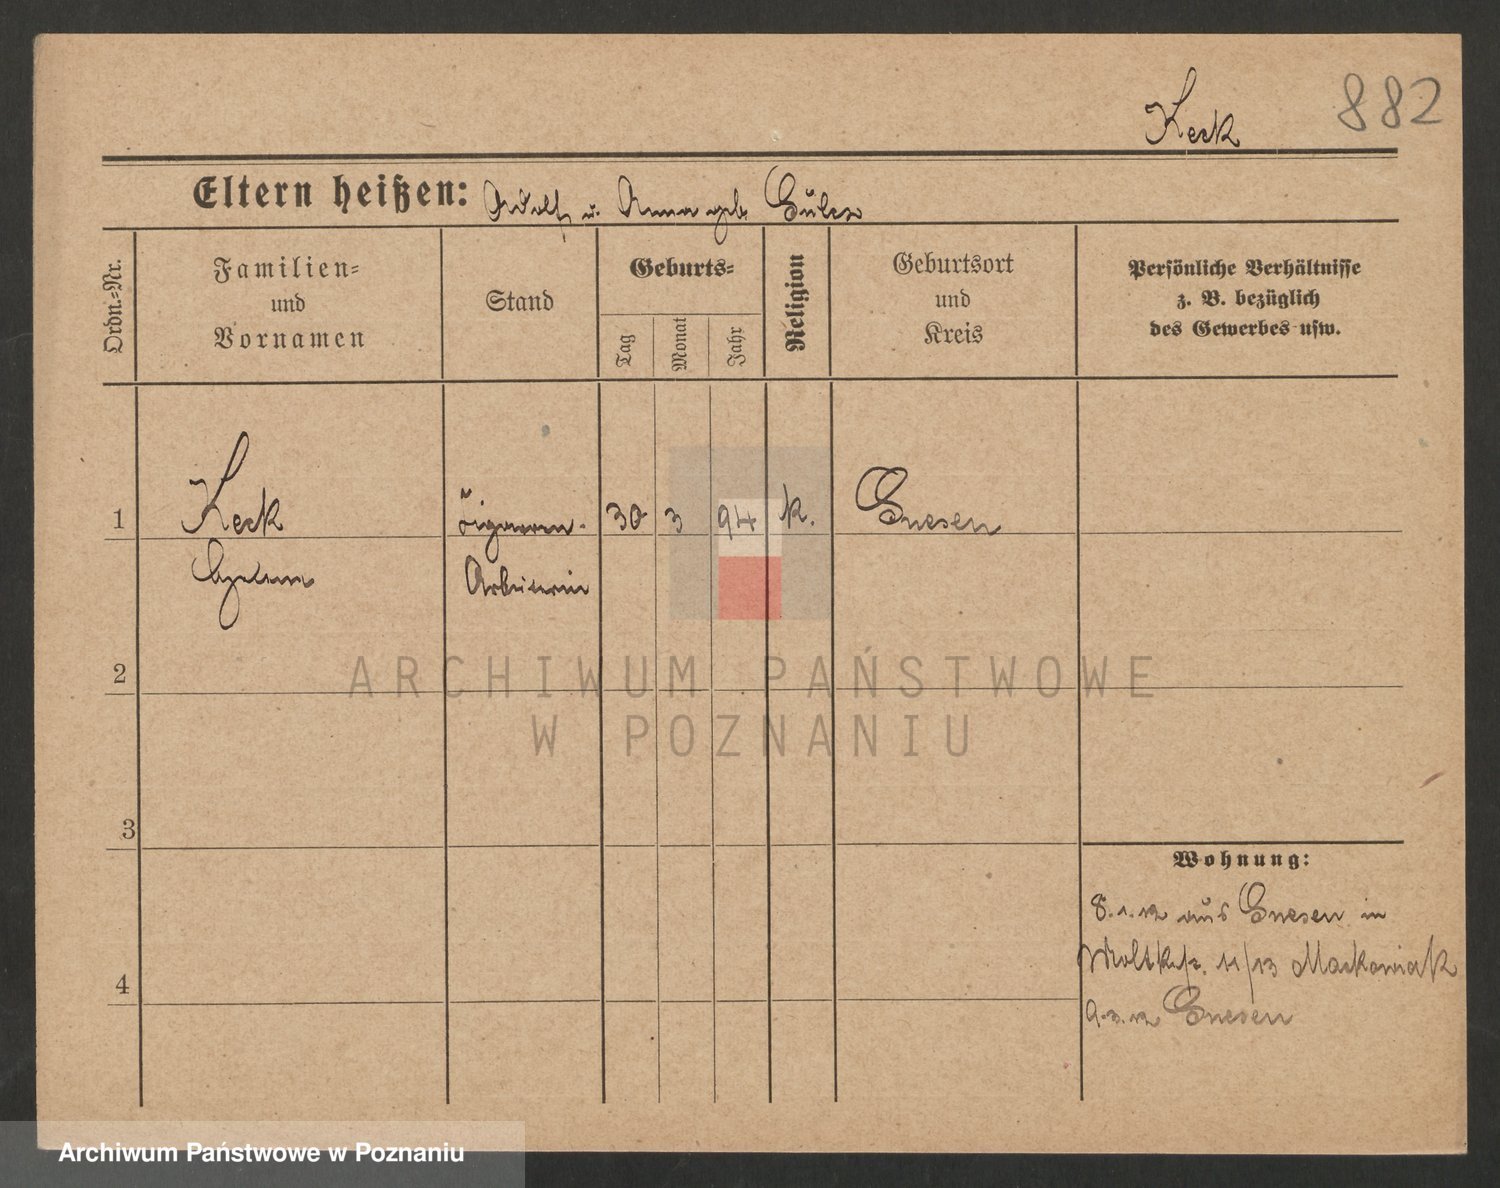 Keck 882
Eltern heißen: Adolf u. Anna geb.
Ordn.-Nr.
Familien-
und
Vornamen
Stand
Geburts-
Tag
Monat
Jahr
Religion
Geburtsort
und
Kreis
Persönliche Verhältnisse
z. B. bezüglich
des Gewerbes usw.
1 Keck Zigarren- 30 3 94 k. Gnesen
Arbeiterin
2
3
4
Wohnung:
8.1.12 aus Gnesen in
Moltkestr. 11/13 Maćkowiak
9.3.12 Gnesen
ARCHIWUM PAŃSTWOWE
W POZNANIU
Archiwum Państwowe w Poznaniu